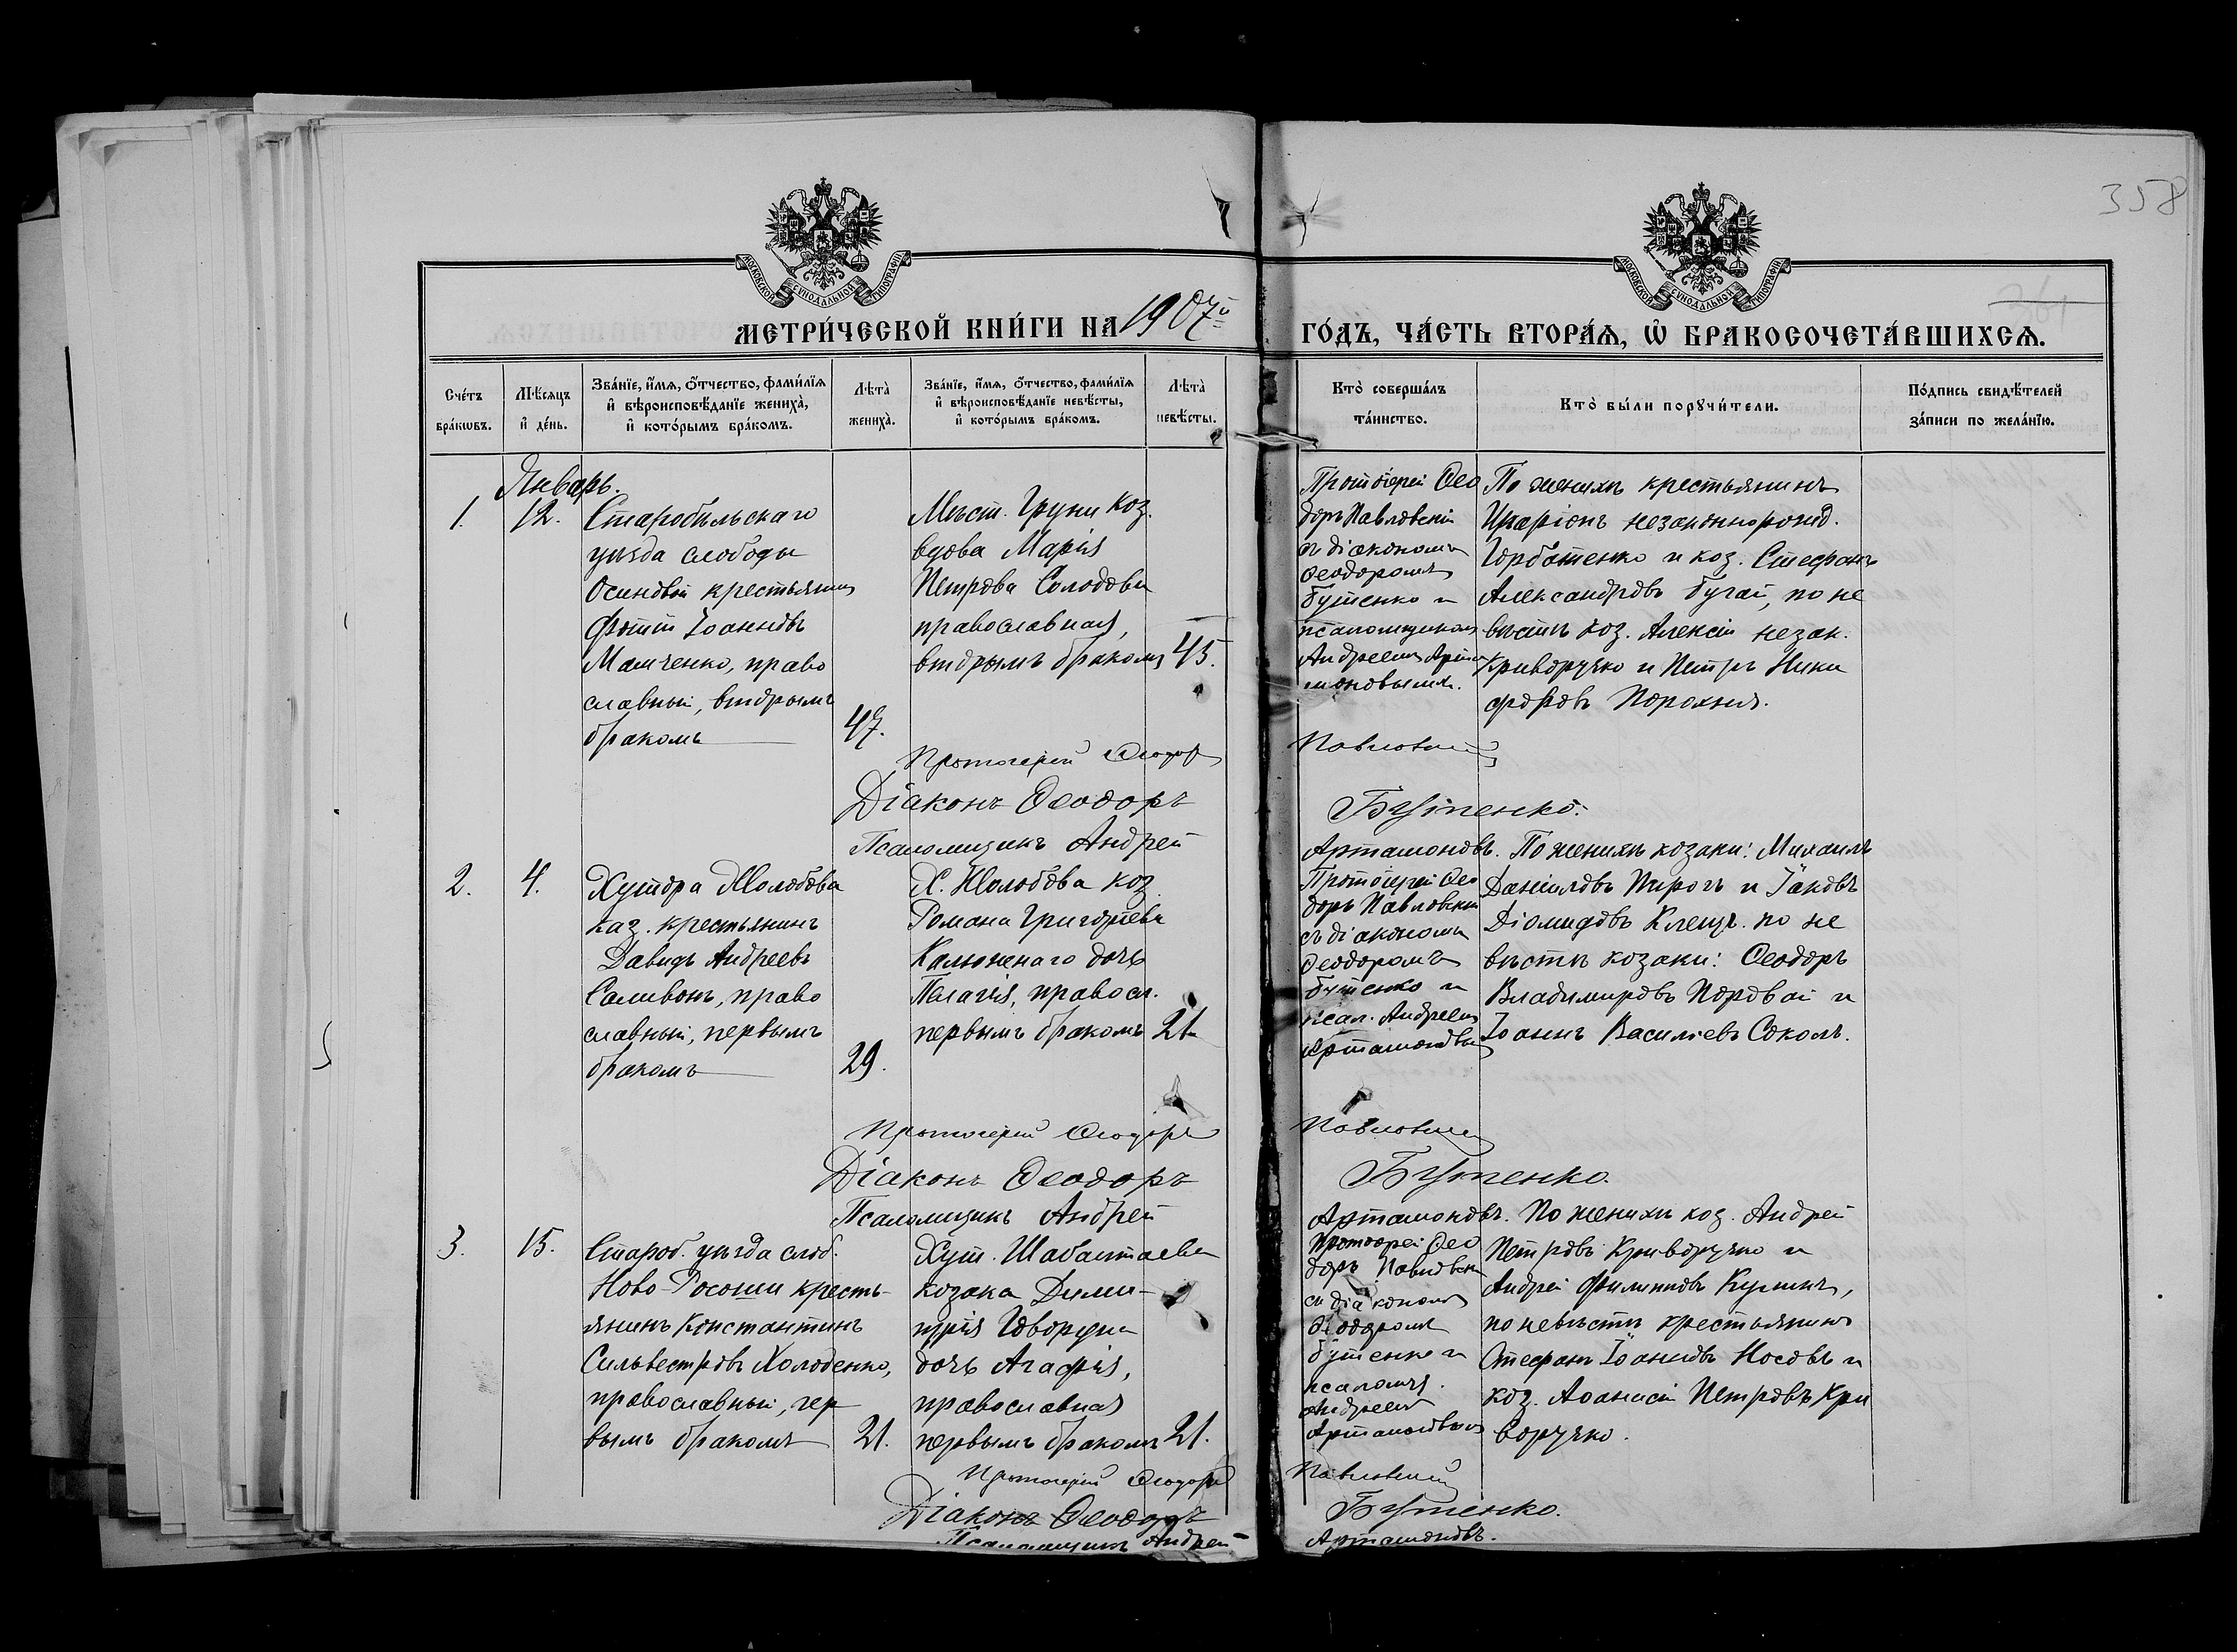 358
МОСКОВСКОЙ СУНОДАЛЬНОЙ ТИПОГРАФІИ
МОСКОВСКОЙ СУНОДАЛЬНОЙ ТИПОГРАФІИ
МЕТРИ́ЧЕСКОЙ КНИ́ГИ НА 1907й
ГО́ДЪ, ЧА́СТЬ ВТОРА́Ѧ, Ѽ БРАКОСОЧЕТА́ВШИХСѦ.
Сче́тъ бра́кωвъ.
Мѣ́сѧцъ и҆ де́нь.
Зва́нїе, и҆́мѧ, ѻ҆́тчество, фами́лїѧ и҆ вѣроисповѣ́данїе жениха̀, и҆ кото́рымъ бра́комъ.
Лѣта̀ жениха̀.
Зва́нїе, и҆́мѧ, ѻ҆́тчество, фами́лїѧ и҆ вѣроисповѣ́данїе невѣ́сты, и҆ кото́рымъ бра́комъ.
Лѣта̀ невѣ́сты.
Кто̀ соверша́лъ та́инство.
Кто̀ бы́ли порꙋчи́тели.
По́дпись свидѣ́телей за́писи по жела́нїю.
Январь.
1.
12.
Старобѣльскаго
уѣзда слободы
Осиновой крестьянинъ
Фотій Іоанновъ
Мамченко, право
славный, вторымъ
бракомъ
47.
Мѣст. Груни коз.
вдова Марія
Петрова Солодова
православная,
вторымъ бракомъ
45.
Протоіерей Ѳео
доръ Павловскій
съ діакономъ
Ѳеодоромъ
Бутенко и
псаломщикомъ
Андреемъ Арта
моновымъ.
По женихѣ крестьянинъ
Иларіонъ незаконнорожд.
Горбатенко и коз. Стефанъ
Александровъ Бугай, по не
вѣстѣ коз. Алексій незак.
Криворучко и Петръ Ники
форовъ Порохня.
Протоіерей Ѳеодоръ Павловскій
Діаконъ Ѳеодоръ Бутенко.
Псаломщикъ Андрей Артамоновъ.
2.
4.
Хутора Жолобова
каз. крестьянинъ
Давидъ Андреевъ
Саливонъ, право
славный, первымъ
бракомъ
29.
Х. Жолобова коз.
Романа Григоріева
Калюжнаго дочь
Пелагія, правосл.
первымъ бракомъ
21
Протоіерей Ѳео
доръ Павловскій
съ діакономъ
Ѳеодоромъ
Бутенко и
псал. Андреемъ
Артамоновым
По женихѣ козаки: Михаилъ
Даніиловъ Пирогъ и Іаковъ
Діомидовъ Клещъ. по не
вѣстѣ козаки: Ѳеодоръ
Владимировъ Поровай и
Іоаннъ Василіевъ Соколъ.
Протоіерей Ѳеодоръ Павловскій
Діаконъ Ѳеодоръ Бутенко.
Псаломщикъ Андрей Артамоновъ.
3.
15.
Староб. уѣзда слоб.
Ново-Росоши кресть-
янинъ Константинъ
Сильвестровъ Холоденко,
православный, пер
вымъ бракомъ
21.
Хут. Шабалтаева
козака Дими-
трія Говоруна
дочь Агафія,
православная
первымъ бракомъ
21.
Протоіерей Ѳео
доръ Павловскій
съ діакономъ
Ѳеодоромъ
Бутенко и
псаломщ.
Андреемъ
Артамоновым
По женихѣ коз. Андрей
Петровъ Криворучко и
Андрей Филипповъ Кулинъ,
по невѣстѣ крестьянинъ
Стефанъ Іоанновъ Носовъ и
коз. Аѳанасій Петровъ Кри
воручко.
Протоіерей Ѳеодоръ Павловскій
Діаконъ Ѳеодоръ Бутенко.
Псаломщикъ Андрей Артамоновъ.